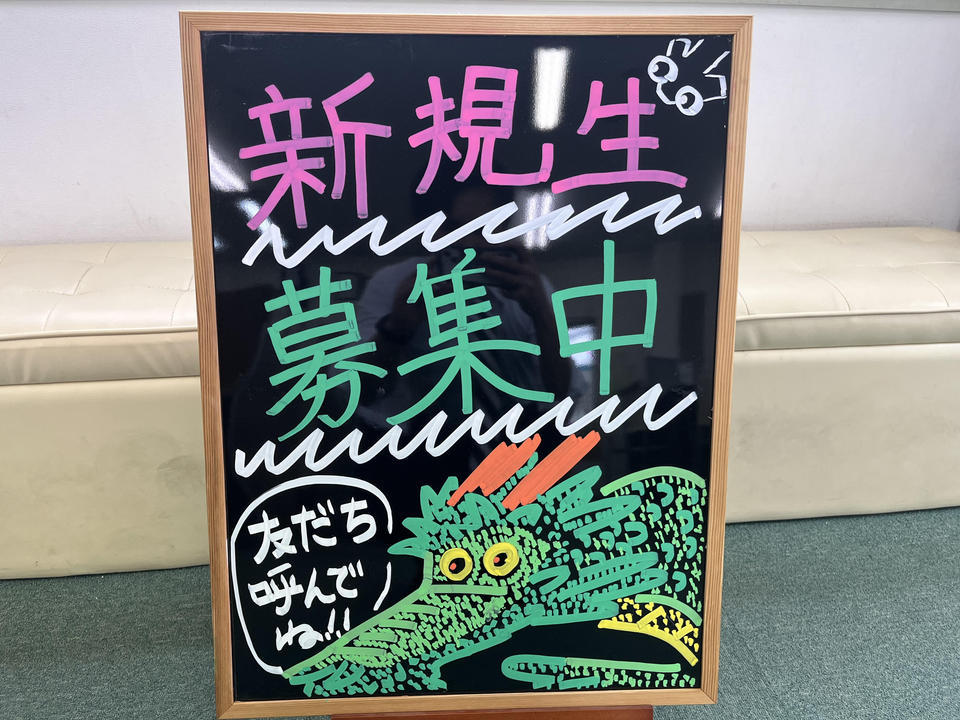 新規生
募集中
友だち
呼んで
ね!!